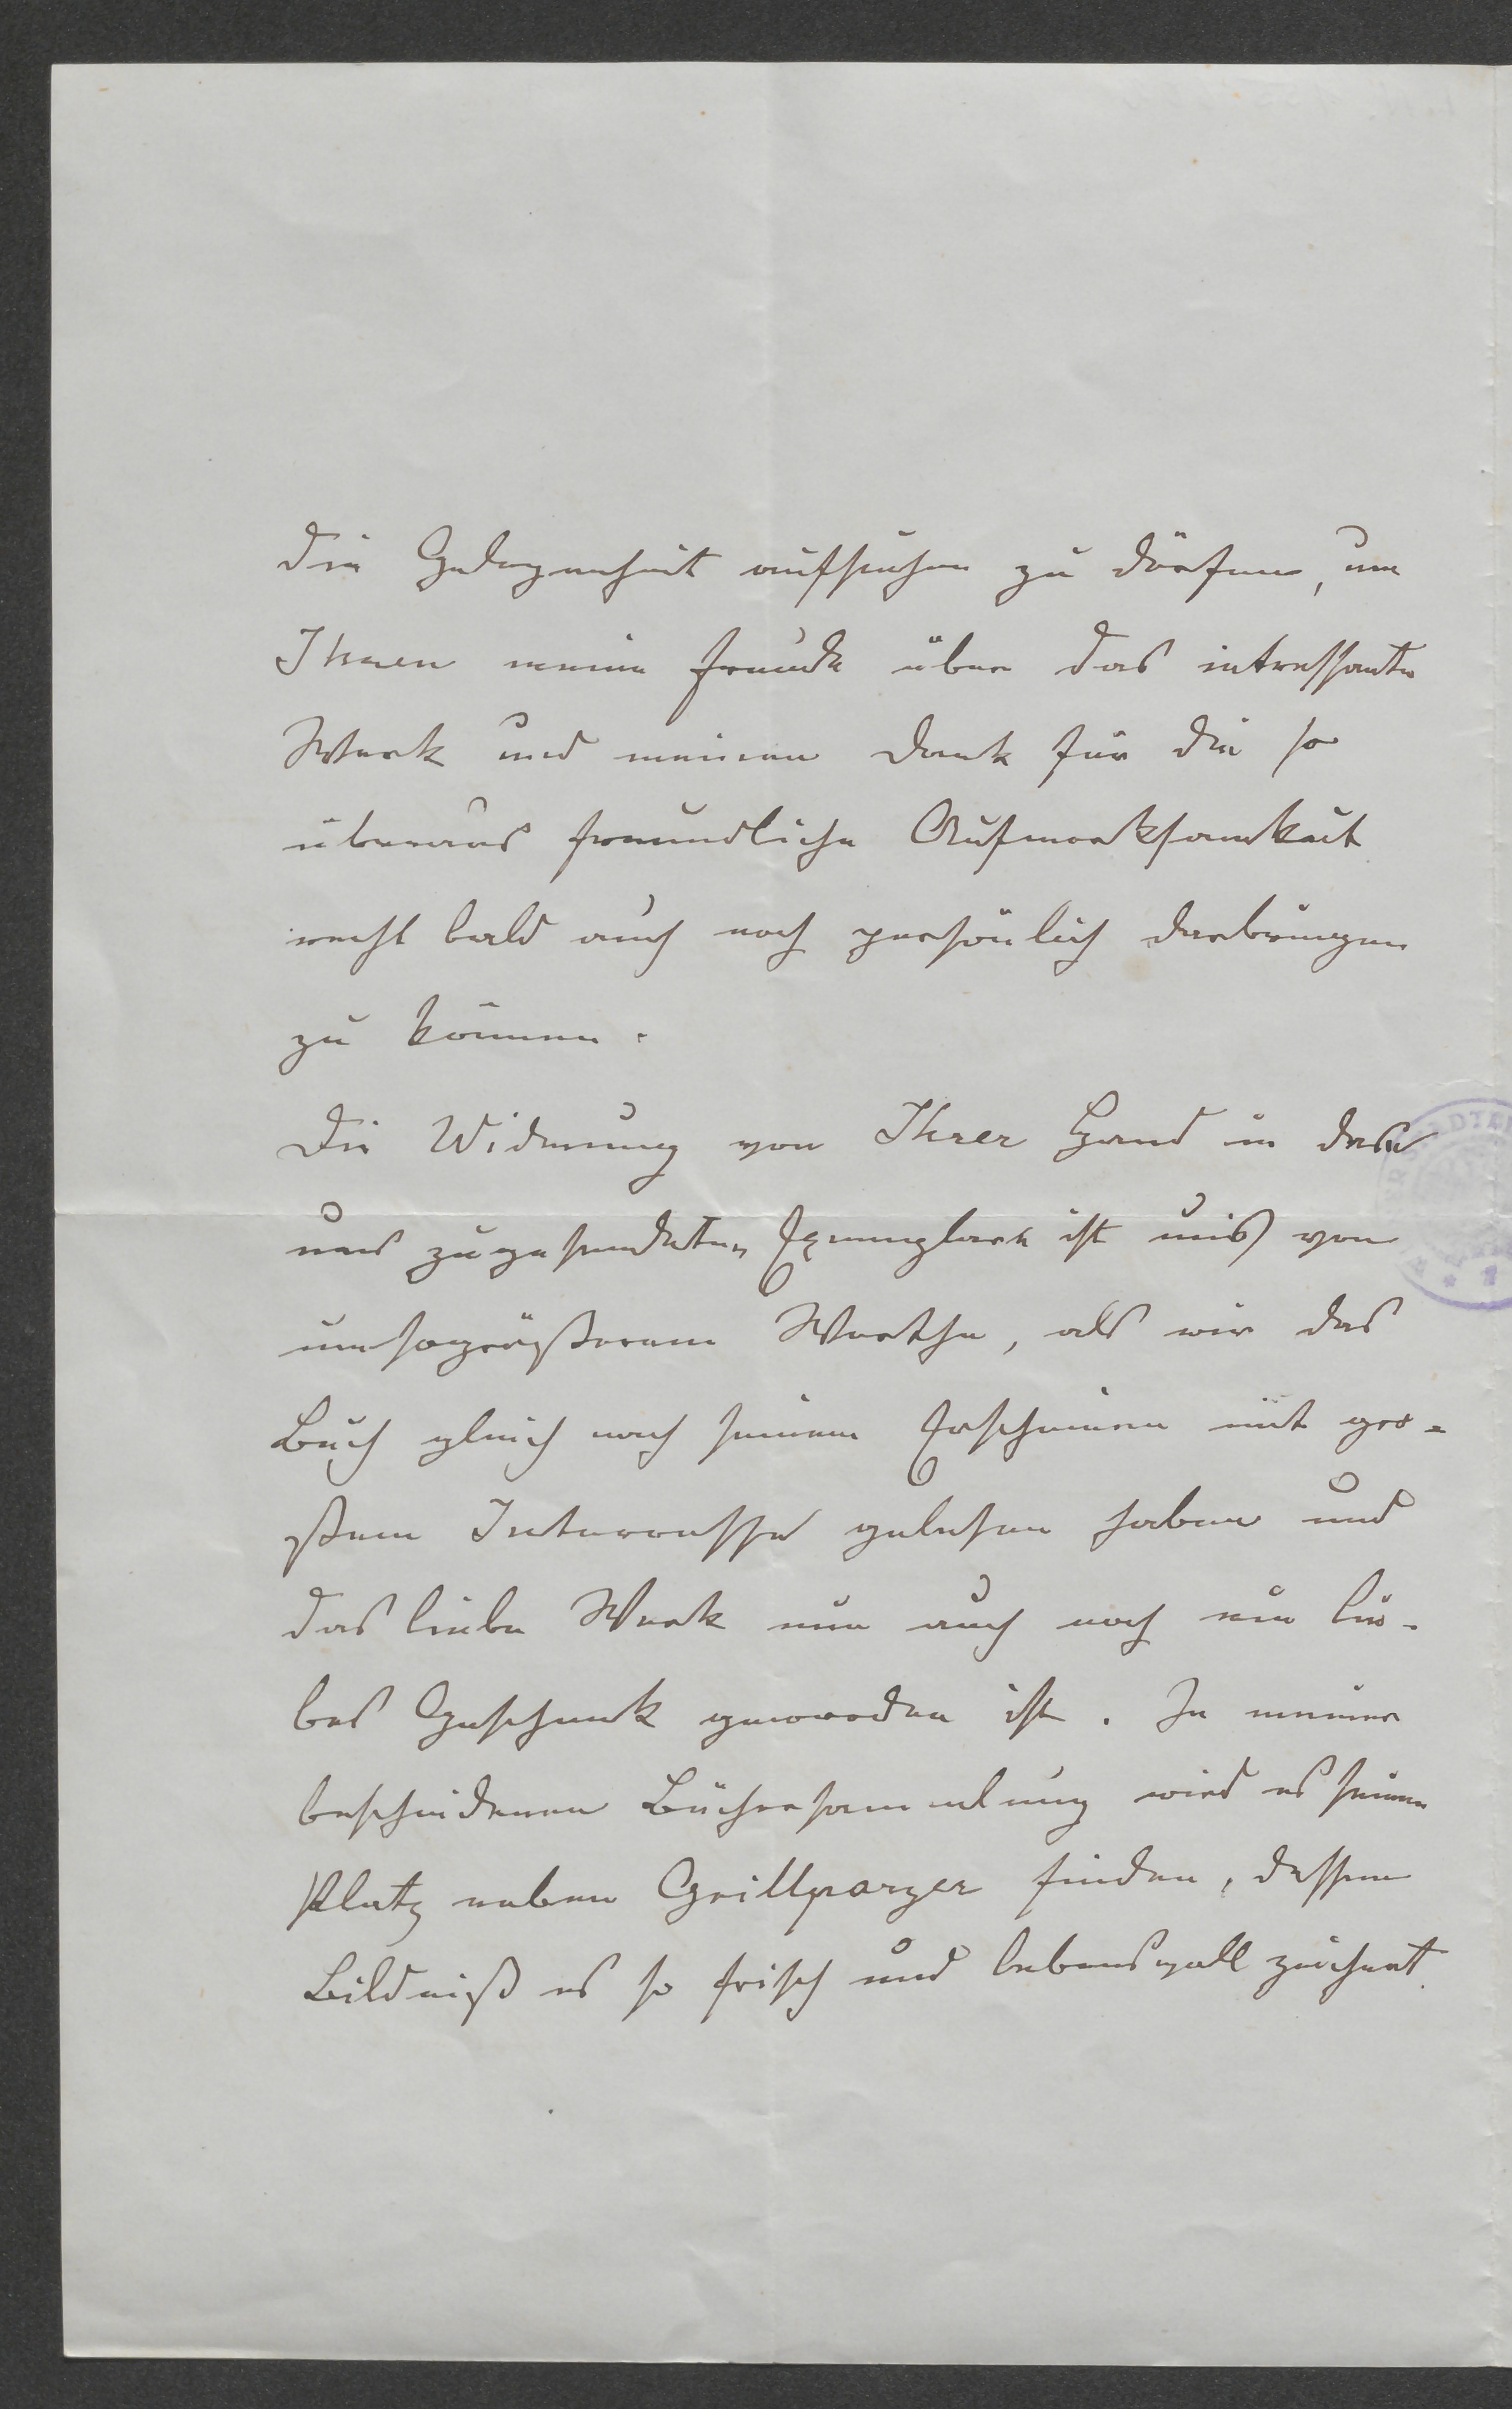 die Gelegenheit aufsuchen zu dörfen, um
Ihnen meine Freude über das intressante
Werk und meinen Dank für die so
überaus freundliche Aufmerksamkeit
recht bald auch noch persönlich darbringen
zu können.
Die Widmung von Ihrer Hand in dem
uns zugesendeten Exemplare ist uns von
umsogrößerem Werthe, als wir das
Buch gleich nach seinem Erscheinen mit gro=
ßem Interresse gelesen haben und
das liebe Werk nun auch noch ein lie-
bes Geschenk geworden ist. In meiner
bescheidenen Büchersammlung wird es seinen
Platz neben Grillparzer finden, dessen
Bildniß es so frisch und lebensvoll zeichnet.